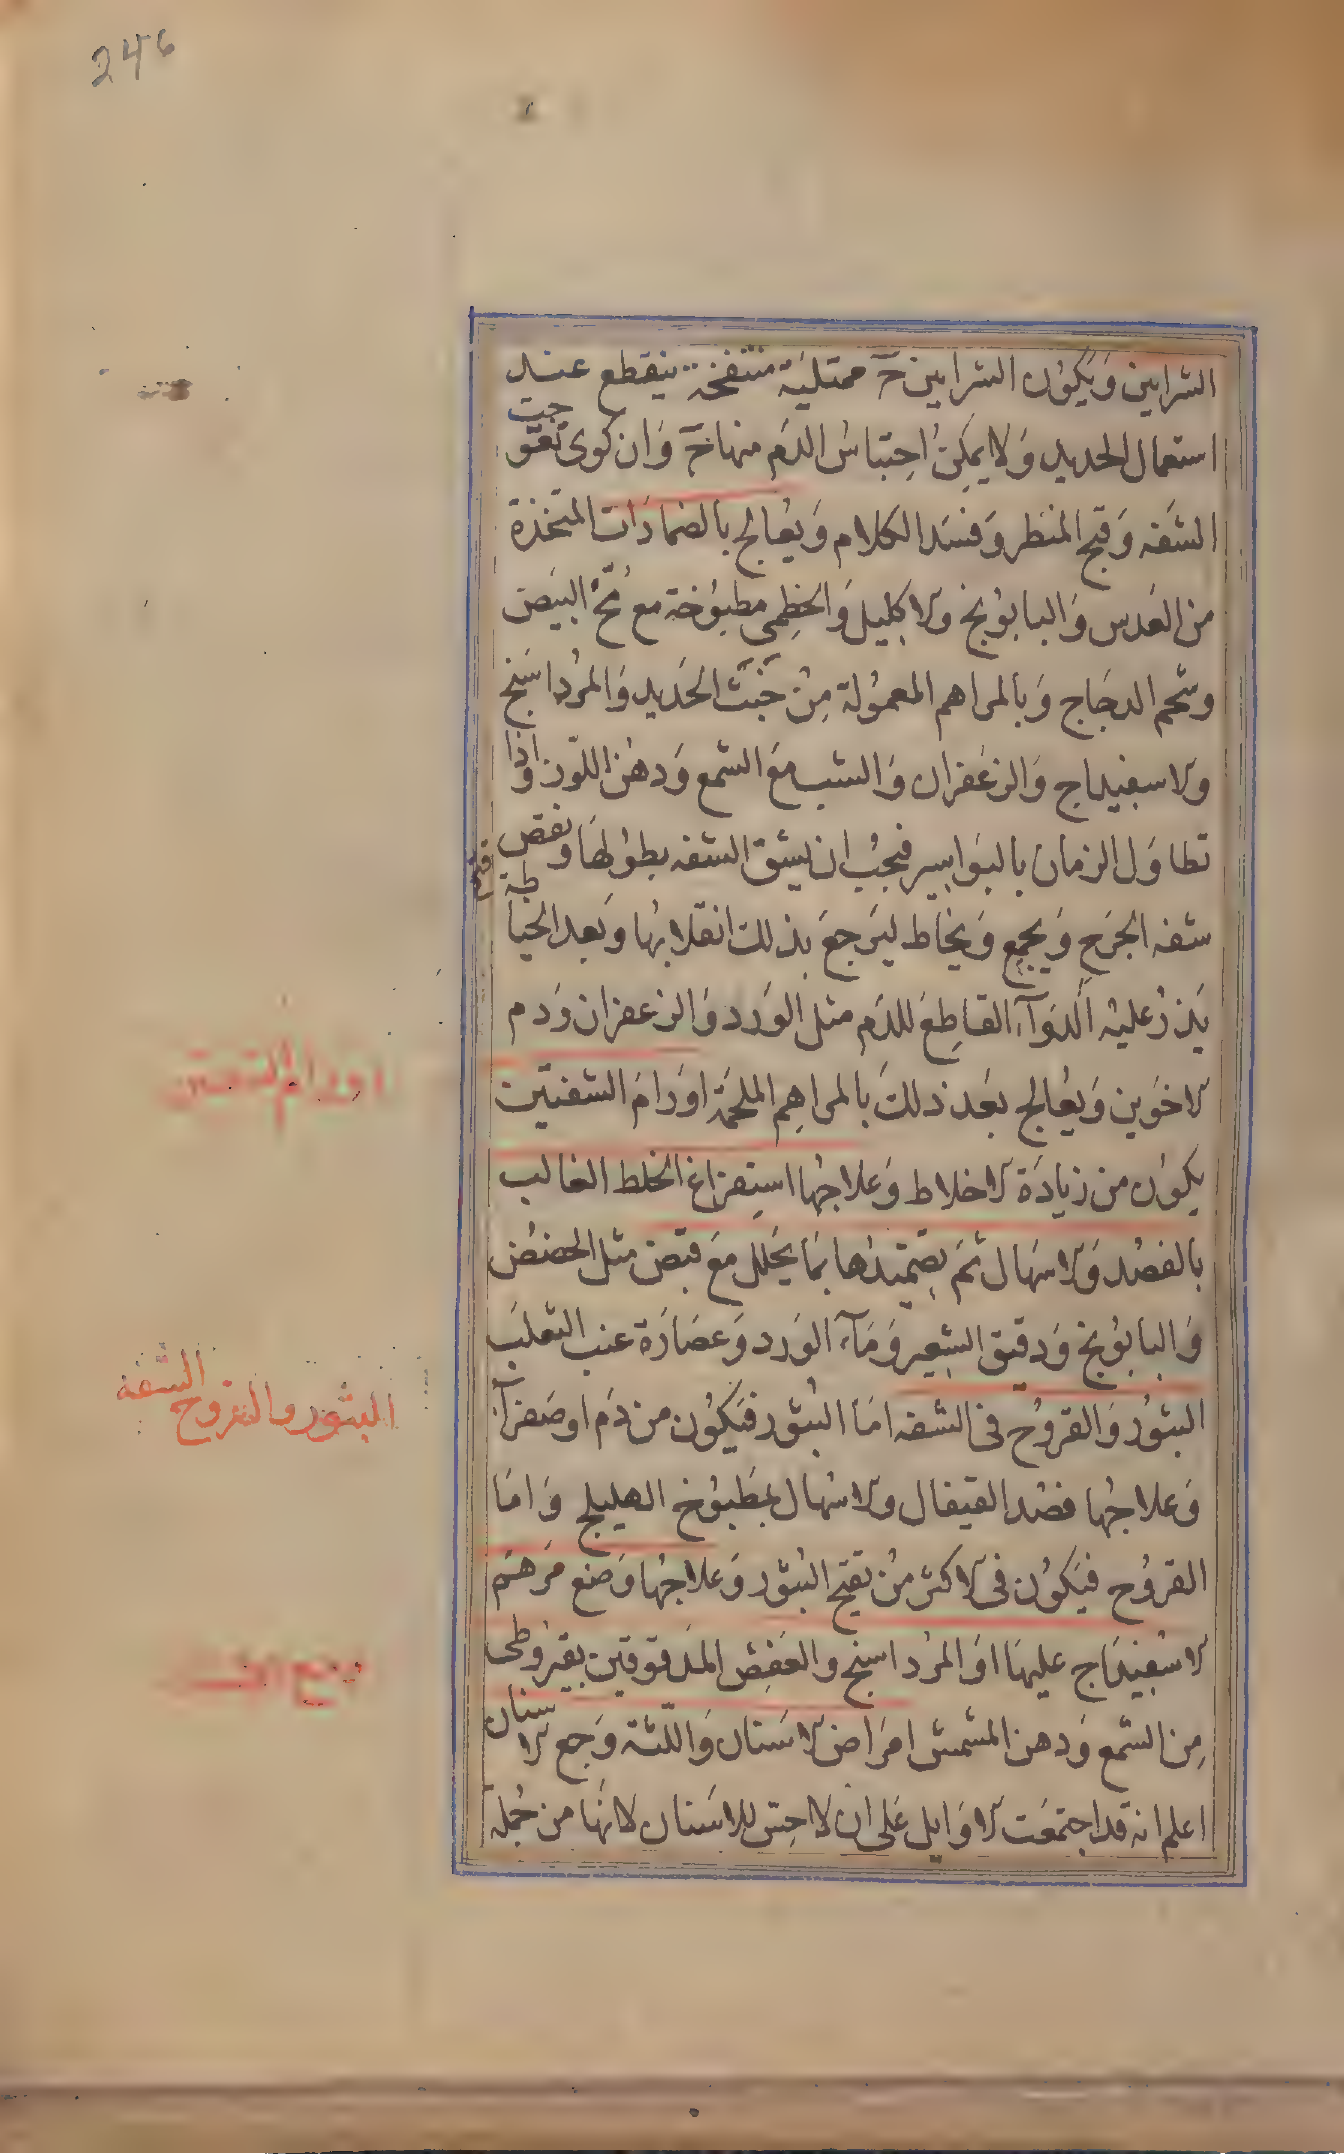 246
الشرايين وَيَكُون الشرايين حَ ممتليَة منتفخة ينقطع عنـد
استعمال الحديد وَلا يمكِن اُحِتباسُ الدَم منها حَ وَان كوى تعوّجت
الشَفه وَقبح المنظر وَفسَد الكلام وَيعُالج بالضمادَات المتخذة
من العَدس وَالبابوُنج والاكليل وَالخِطمِي مطبوُخة مع مُحّ البيَض
وشحم الدجَاج وَبالمراهم المعموُلة مِنْ خَبَث الحَديد وَالمرُداسَنج
والاسفيداج وَالزعَفران وَالشب معَ الشمع وَدهنْ اللّوز وَاذا
تطاوَل الزمان بالبوَاسِير فيجبُ ان يشق الشفه بطوُلهَا ويقص
شفه الجَرحِ وَيجمِع وَيخَاط ليَرجعَ بذلك انقلابهُا وَبعد الخياطة
يَذرُ عليْه الَدوَآء القاطِعَ للدَم مثل الوَرد وَالزعفران وَدم
الاخوَين وَيعُالج بعَد ذلكَ بالمراهِم الملحمَة اوَرامَ الشفتيَن
يكوُن من زيادَة الاخلاط وَعلاجهُا اسِتفراغ الخلط الغالب
بالفصْد وَالاسهَال ثمَ بِتضميَدهُا بمَا يحَلل معَ قبَض مثل الحضُض
وَالبابوُنج وَدقيق الشعِير وَمَآء الوَرد وَعصَارَة عنب الثعلَب
البثوُر وَالقروُح فى الشفه امَا البثُور فيَكوُن من دَم اوصَفرآء
وَعلاجهُا فصْد القيفال والاسْهال بمطَبوُخ الهليلج وَامَا
القرُوح فيَكوُن فى الاكثر مِنْ تقيح البثوُر وَعلاجهُا وَضع مَرهَم
الاسْفيدَاج عليهَا اوَ المرُداسنج والعَفِص المدَقوقين بقيرُوطى
مِن الشمع وَدهن المشمش امرَاض الاسَنان وَاللّثة وَجع الاسنان
اعلم انه قد اجتمعَت الاوَايل عَلى ان لا حِسّ للاسَنان لانهَا من جُملة
اورام الشفتين
البثور والقروح الشفه
وجع الاسنان